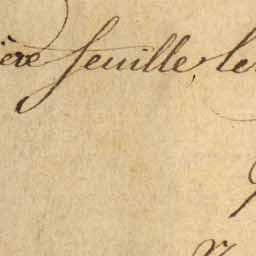 ière feuille, le